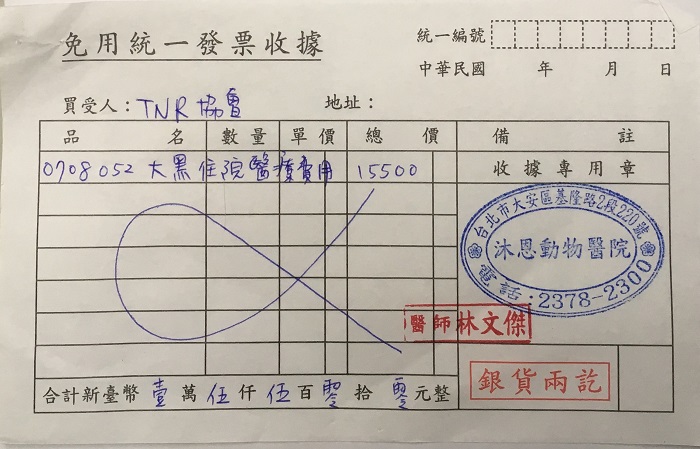 免用統一發票收據
統一編號
中華民國 年 月 日
買受人：TNR協會 地址：
品名 數量 單價 總價 備註
0708052 大黑住院醫療費用 15500 收據專用章
台北市大安區基隆路2段220號
沐恩動物醫院
電話：2378-2300
醫師林文傑
銀貨兩訖
合計新臺幣壹萬伍仟伍百零拾零元整